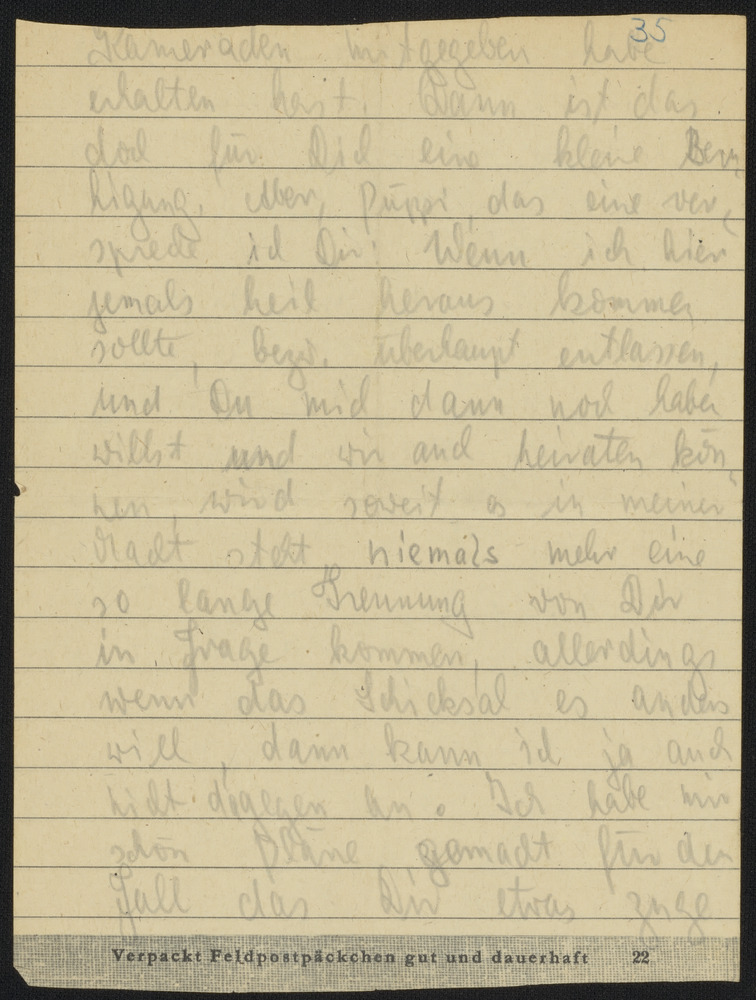 35
Kameraden mitgegeben habe
erhalten hast. Dann ist das
doch für Dich eine kleine Beru-
higung. Aber, Puppi, das eine ver-
spreche ich Dir: Wenn ich hier
jemals heil heraus kommen
sollte, bezw. überhaupt entlassen,
und Du mich dann noch haben
willst und wir auch heiraten kön-
nen, wird soweit es in meiner
Macht steht niemals mehr eine
so lange Trennung von Dir
in Frage kommen, allerdings
wenn das Schicksal es anders
will, dann kann ich ja auch
nicht dagegen an. Ich habe mir
schon Pläne gemacht für den
Fall das Dir etwas zuge
Verpackt Feldpostpäckchen gut und dauerhaft 22